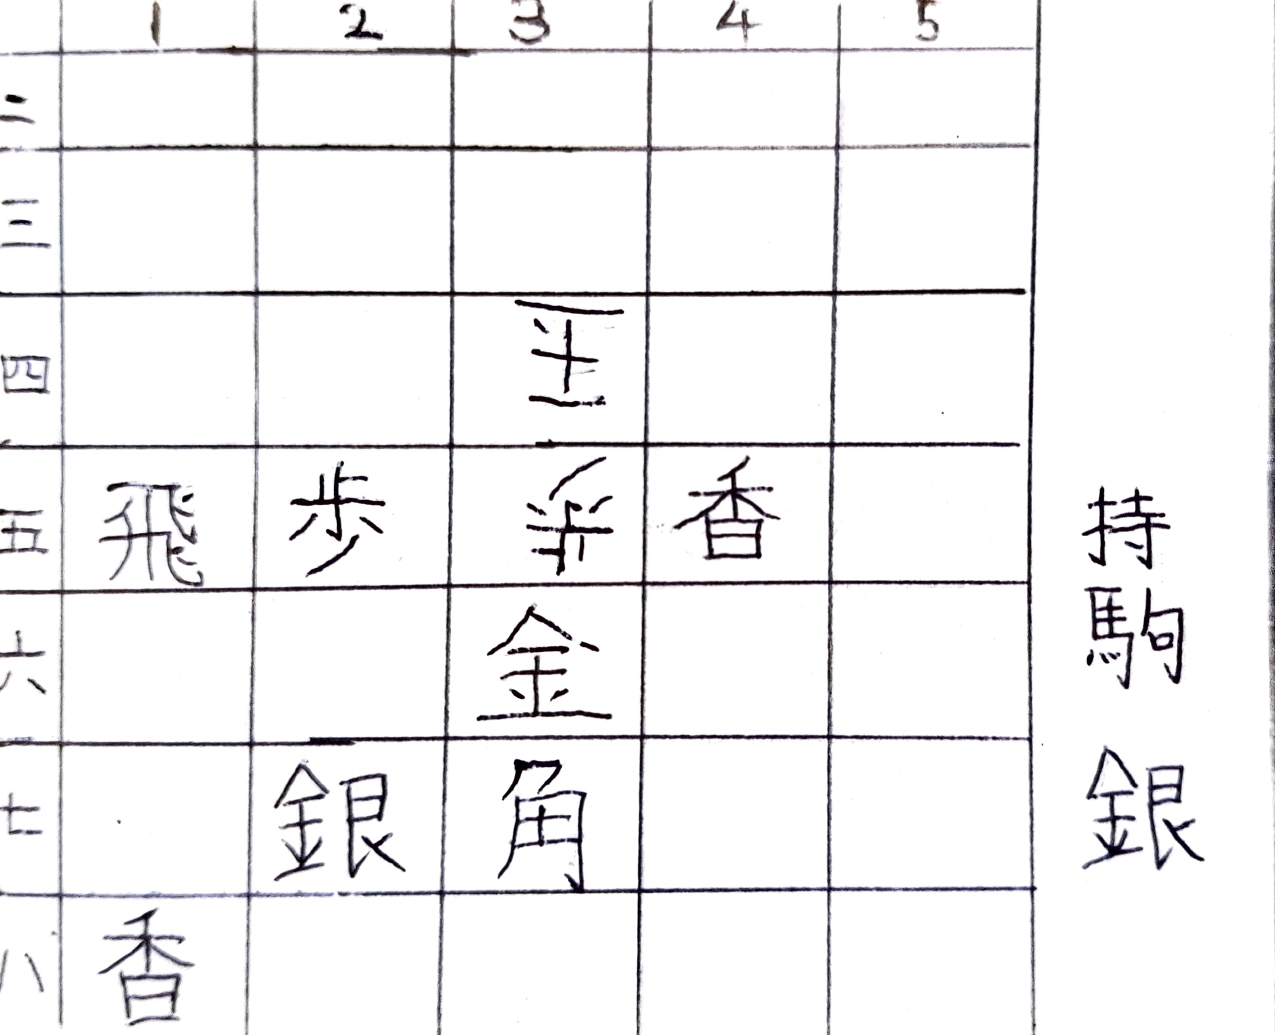 1 2 3 4 5
二
三
四
五 飛 歩 歩 香
六 金
七 銀 角
八 香
持
駒
銀